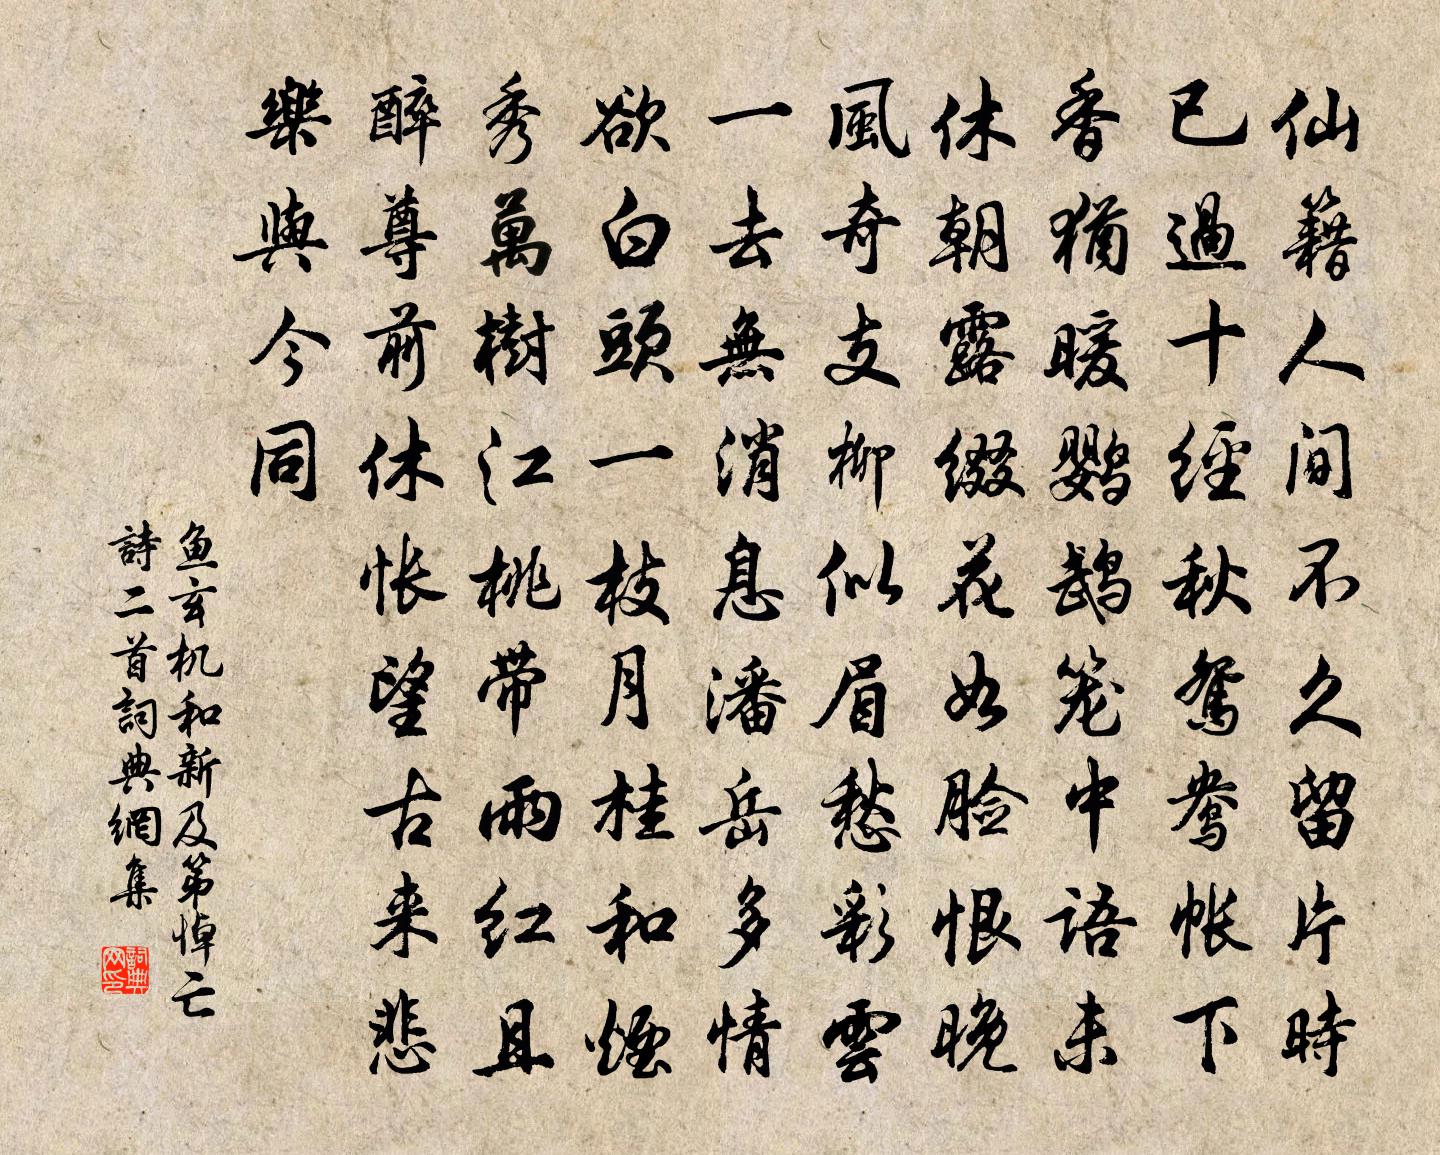 仙籍人間不久留片時
已過十經秋鴛鴦帳下
香猶暖鸚鵡笼中語未
休朝露綴花如脸恨晚
風奇支柳似眉愁彩雲
一去無消息潘岳多情
欲白頭一枝月桂和煙
秀萬樹江桃带雨红且
醉尊前休怅望古来悲
樂與今同
鱼玄机和新及第悼亡
詩二首詞典網集
詞典
网印